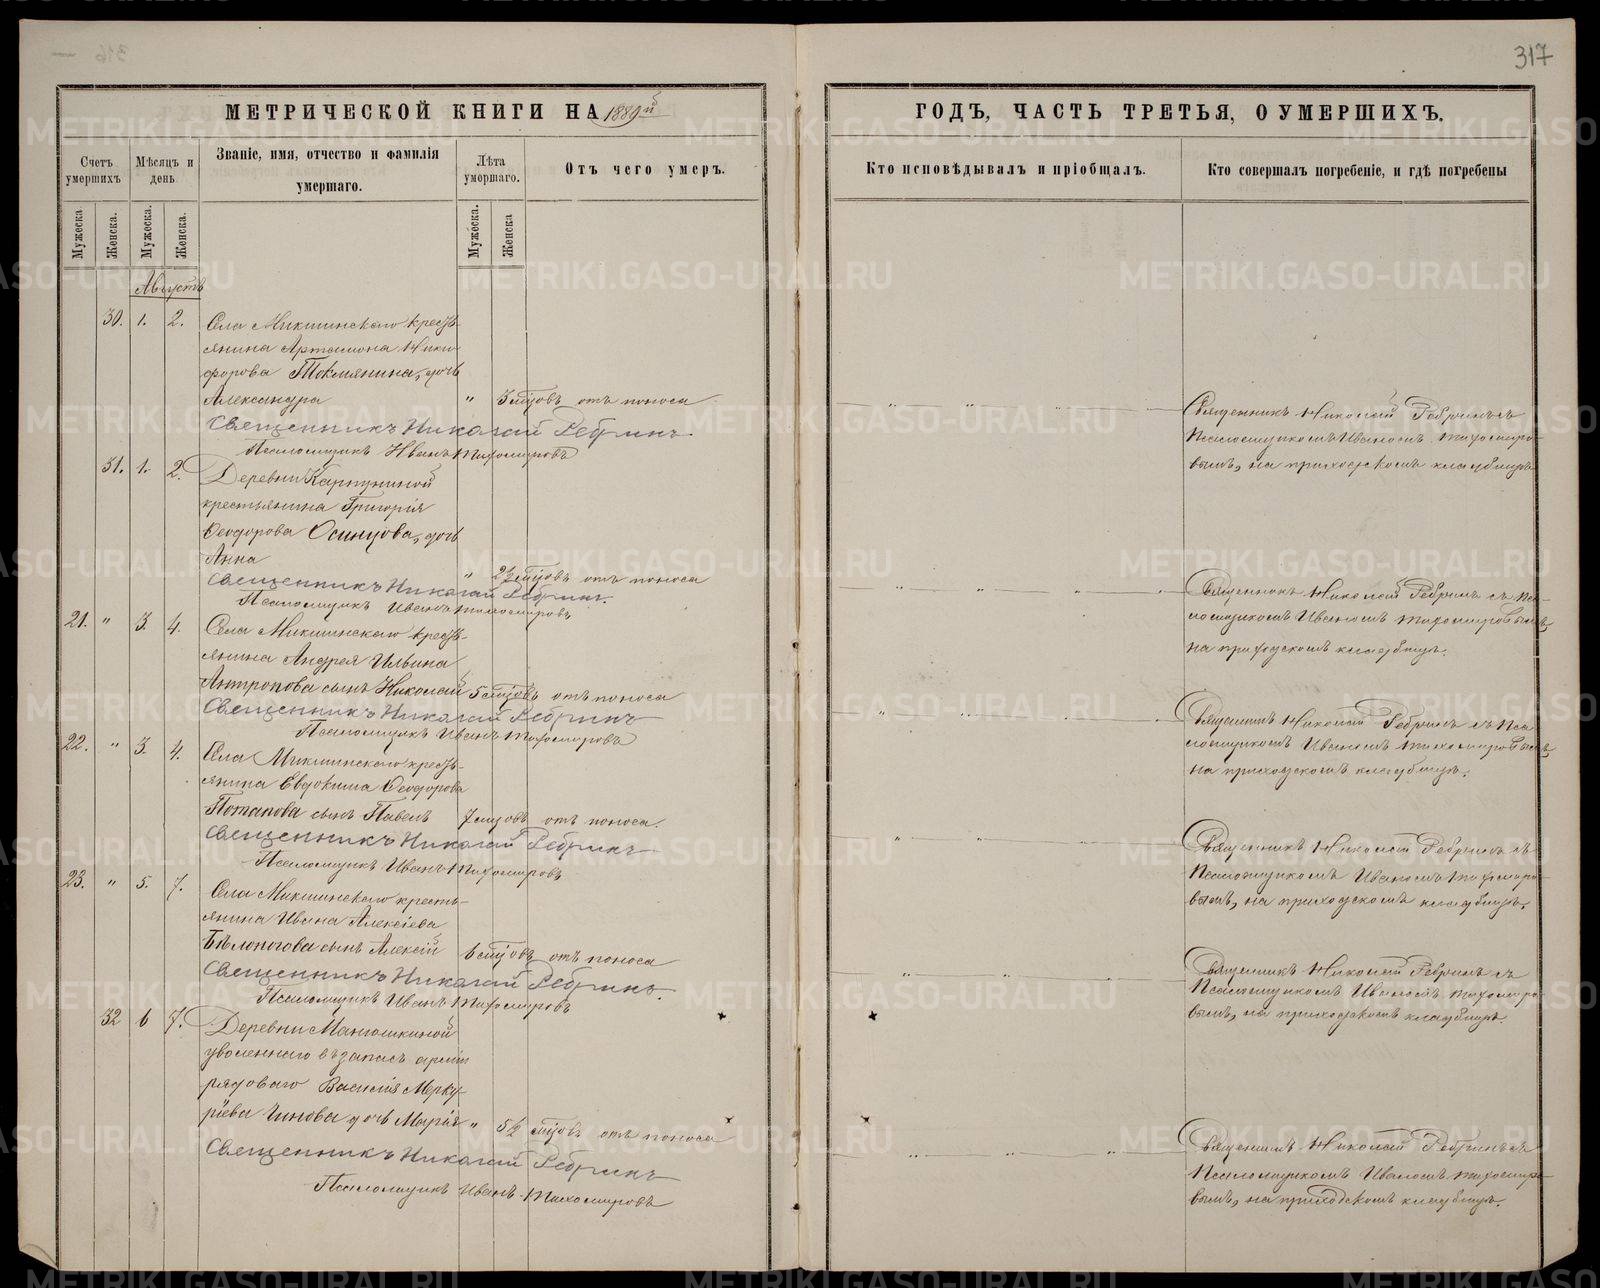 317
МЕТРИЧЕСКОЙ КНИГИ НА 1889й
ГОДЪ, ЧАСТЬ ТРЕТЬЯ, О УМЕРШИХЪ.
Счетъ умершихъ
Мѣсяцъ и день
Званіе, имя, отчество и фамилія умершаго.
Лѣта умершаго.
Отъ чего умеръ.
Кто исповѣдывалъ и пріобщалъ.
Кто совершалъ погребеніе, и гдѣ погребены
Мужеска. Женска. Мужеска. Женска. Мужеска. Женска
Августъ
30. 1. 2. Села Микшинскаго кресть-
янина Артамона Ники-
форова Токмянина, дочь
Александра " 3 мцовъ отъ поноса
Священникъ Николай Ребринъ
Псаломщикъ Иванъ Тихомировъ
Священникъ Николай Ребринъ съ
Псаломщикомъ Иваномъ Тихомиро-
вымъ, на приходскомъ кладбищѣ
31. 1. 2. Деревни Карпуниной
крестьянина Григорія
Ѳеодорова Осинцова, дочь
Анна
" 2½ мцовъ отъ поноса
Священникъ Николай Ребринъ.
Псаломщикъ Иванъ Тихомировъ
Священникъ Николай Ребринъ съ Пса-
ломщикомъ Иваномъ Тихомировымъ,
на приходскомъ кладбищѣ.
21. " 3. 4. Села Микшинскаго кресть-
янина Андрея Ильина
Антропова сынъ Николай 5 мцовъ отъ поноса
Священникъ Николай Ребринъ
Псаломщикъ Иванъ Тихомировъ
Священникъ Николай Ребринъ съ Пса-
ломщикомъ Иваномъ Тихомировымъ,
на приходскомъ кладбищѣ.
22. " 3. 4. Села Микшинскаго кресть-
янина Евдокима Ѳеодорова
Потапова сынъ Павелъ 7 мцовъ отъ поноса.
Священникъ Николай Ребринъ
Псаломщикъ Иванъ Тихомировъ
Священникъ Николай Ребринъ съ
Псаломщикомъ Иваномъ Тихомиро-
вымъ, на приходскомъ кладбищѣ.
23. " 5. 7. Села Микшинскаго кресть-
янина Ивана Алексіева
Бѣлоногова сынъ Алексій 6 мцовъ отъ поноса
Священникъ Николай Ребринъ.
Псаломщикъ Иванъ Тихомировъ
Священникъ Николай Ребринъ съ
Псаломщикомъ Иваномъ Тихомиро-
вымъ, на приходскомъ кладбищѣ.
32 6 7. Деревни Мантюшкиной
уволеннаго въ запасъ арміи
рядоваго Василія Мерку-
ріева Чинова дочь Марія " 5½ мцовъ отъ поноса
Священникъ Николай Ребринъ
Псаломщикъ Иванъ Тихомировъ
Священникъ Николай Ребринъ съ
Псаломщикомъ Иваномъ Тихомиро-
вымъ, на приходскомъ кладбищѣ.
METRIKI.GASO-URAL.RU